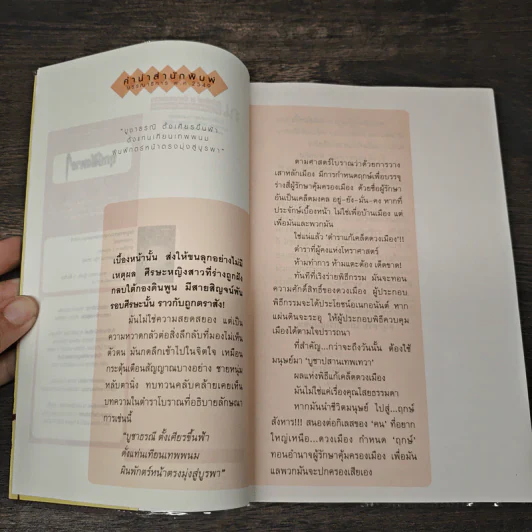 คำนำสำนักพิมพ์
"บูชาธรณี ตั้งเศียรขึ้นฟ้า
ตั้งแท่นเทียนเทพพนม
ผินพักตร์หน้าตรงมุ่งสู่บูรพา"
เบื้องหน้านั้น ส่งให้ขนลุกอย่างไม่มี
เหตุผล ศีรษะหญิงสาวที่ร่างถูกฝัง
กลบใต้กองดินพูน มีสายสิญจน์พัน
รอบศีรษะนั้น ราวกับถูกตราสัง!
มันไม่ใช่ความสยดสยอง แต่เป็น
ความหวาดกลัวต่อสิ่งลึกลับที่มองไม่เห็น
ตัวตน มันกดลึกเข้าไปในจิตใจ เหมือน
กระตุ้นเตือนสัญญาณบางอย่าง ชายหนุ่ม
หลับตานิ่ง ทบทวนคลับคล้ายเคยเห็น
บทความในตำราโบราณที่อธิบายลักษณา
การเช่นนี้
"บูชาธรณี ตั้งเศียรขึ้นฟ้า
ตั้งแท่นเทียนเทพพนม
ผินพักตร์หน้าตรงมุ่งสู่บูรพา"
ตามศาสตร์โบราณว่าด้วยการวาง
เสาหลักเมือง มีการกำหนดฤกษ์เพื่อบรรจุ
ร่างสี่ผู้รักษาคุ้มครองเมือง ด้วยชื่อผู้รักษา
อันเป็นเคล็ดมงคล อยู่-ยั่ง-มั่น-คง หากที่
ประจักษ์เบื้องหน้า ไม่ใช่เพื่อบ้านเมือง แต่
เพื่อมันและพวกมัน
ใช่แน่แล้ว 'ตำราแก้เคล็ดดวงเมือง'!!!
ตำราที่ผู้คงแห่งโหราศาสตร์
ห้ามทำการ ห้ามแตะต้อง เด็ดขาด!
ทันทีที่เริงร่ายพิธีกรรม มันจะทอน
ความศักดิ์สิทธิ์ของดวงเมือง ผู้ประกอบ
พิธีกรรมจะได้ประโยชน์เอนกอนันต์ หาก
แผ่นดินจะระอุ ให้ผู้ประกอบพิธีควบคุม
เมืองได้ตามใจปรารถนา
ที่สำคัญ...กว่าจะถึงวันนั้น ต้องใช้
มนุษย์มา 'บูชาปสานเทพเทวา'
ผลแห่งพิธีแก้เคล็ดดวงเมือง
มันไม่ใช่แค่เรื่องคุณไสยธรรมดา
หากมันนำชีวิตมนุษย์ ไปสู่...ฤกษ์
สังหาร!!! สนองต่อกิเลสของ 'คน' ที่อยาก
ใหญ่เหนือ...ดวงเมือง กำหนด 'ฤกษ์'
ทอนอำนาจผู้รักษาคุ้มครองเมือง เพื่อมัน
แลพวกมันจะปกครองเสียเอง